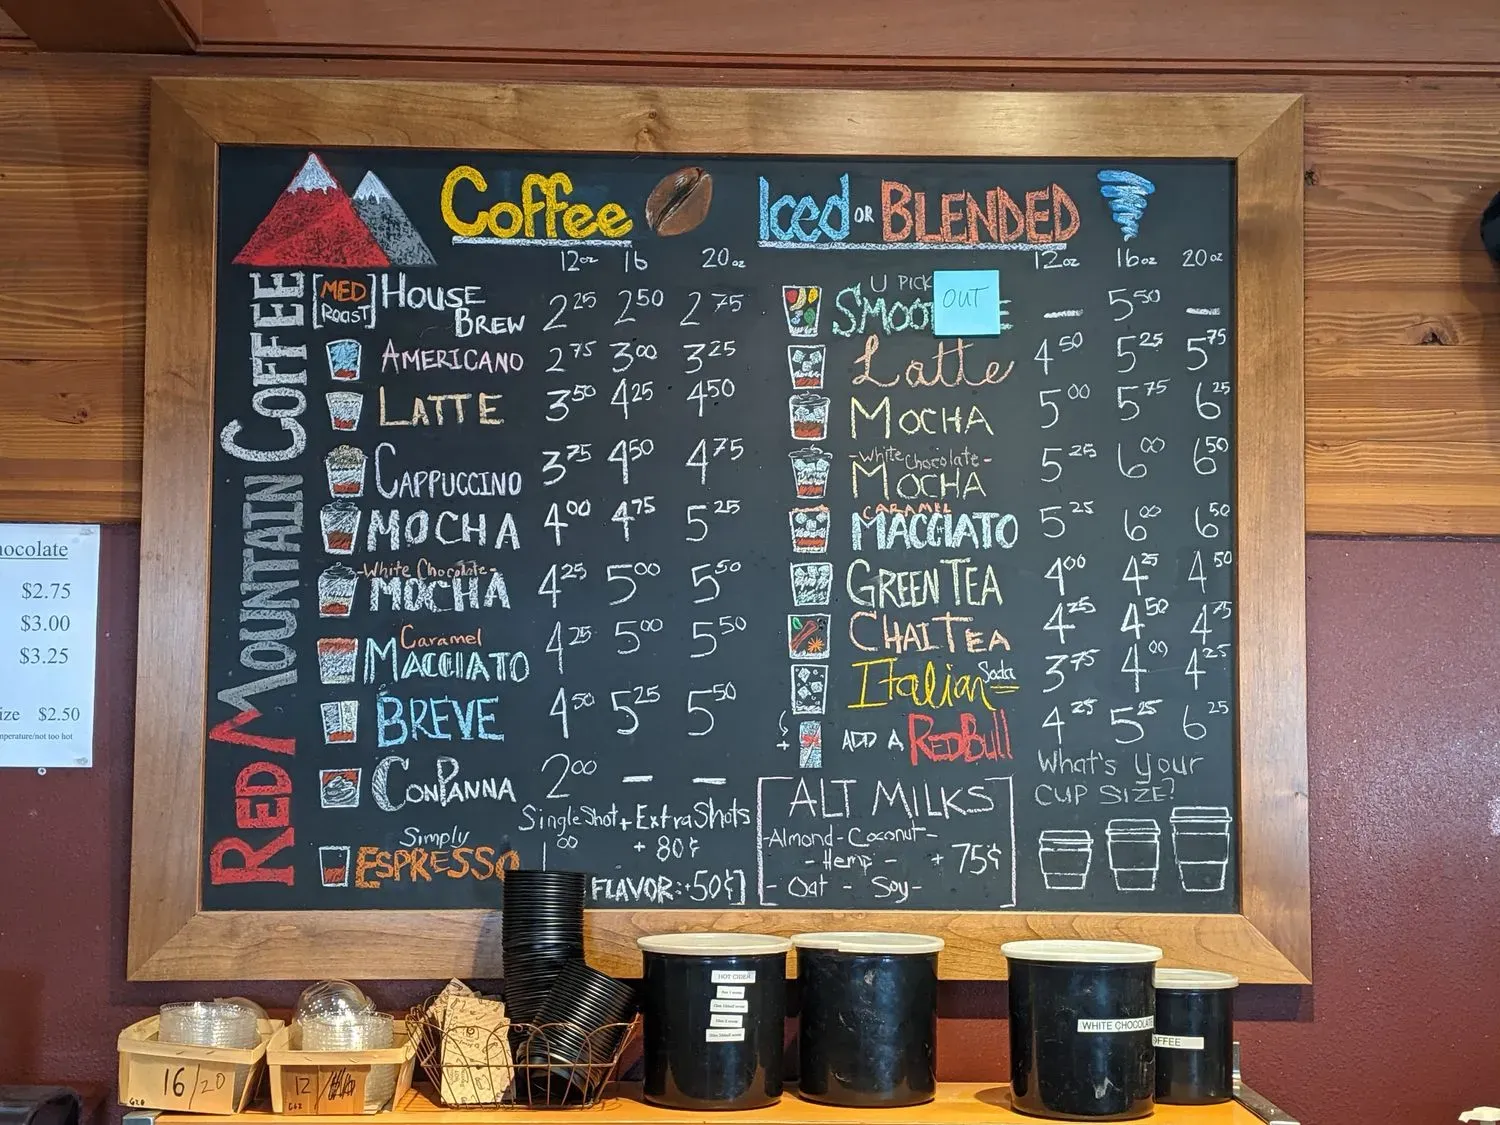 RED MOUNTAIN COFFEE
Coffee
12oz 16 20oz
[MED ROAST] HOUSE BREW 2 25 2 50 2 75
AMERICANO 2 75 3 00 3 25
LATTE 3 50 4 25 4 50
CAPPUCCINO 3 75 4 50 4 75
MOCHA 4 00 4 75 5 25
-White Chocolate-
MOCHA 4 25 5 00 5 50
Caramel
MACCIATO 4 25 5 00 5 50
BREVE 4 50 5 25 5 50
CONPANNA 2 00 — —
Simply
ESPRESSO
Single Shot + Extra Shots
1 00 + 80¢
FLAVOR: +50¢]
Iced OR BLENDED
12oz 16oz 20oz
U PICK
SMOO E — 5 50 —
OUT
Latte 4 50 5 25 5 75
MOCHA 5 00 5 75 6 25
-White Chocolate-
MOCHA 5 25 6 00 6 50
CARAMEL
MACCIATO 5 25 6 00 6 50
GREEN TEA 4 00 4 25 4 50
CHAI TEA 4 25 4 50 4 75
Italian Soda 3 75 4 00 4 25
+ ADD A REDBULL 4 25 5 25 6 25
ALT MILKS
-Almond-Coconut-
- Hemp - + 75¢
- Oat - Soy -
WHAT'S YOUR
CUP SIZE?
ocolate
$2.75
$3.00
$3.25
ize $2.50
mperature/not too hot
16/20
12
HOT CIDER
WHITE CHOCOLATE
OFFEE